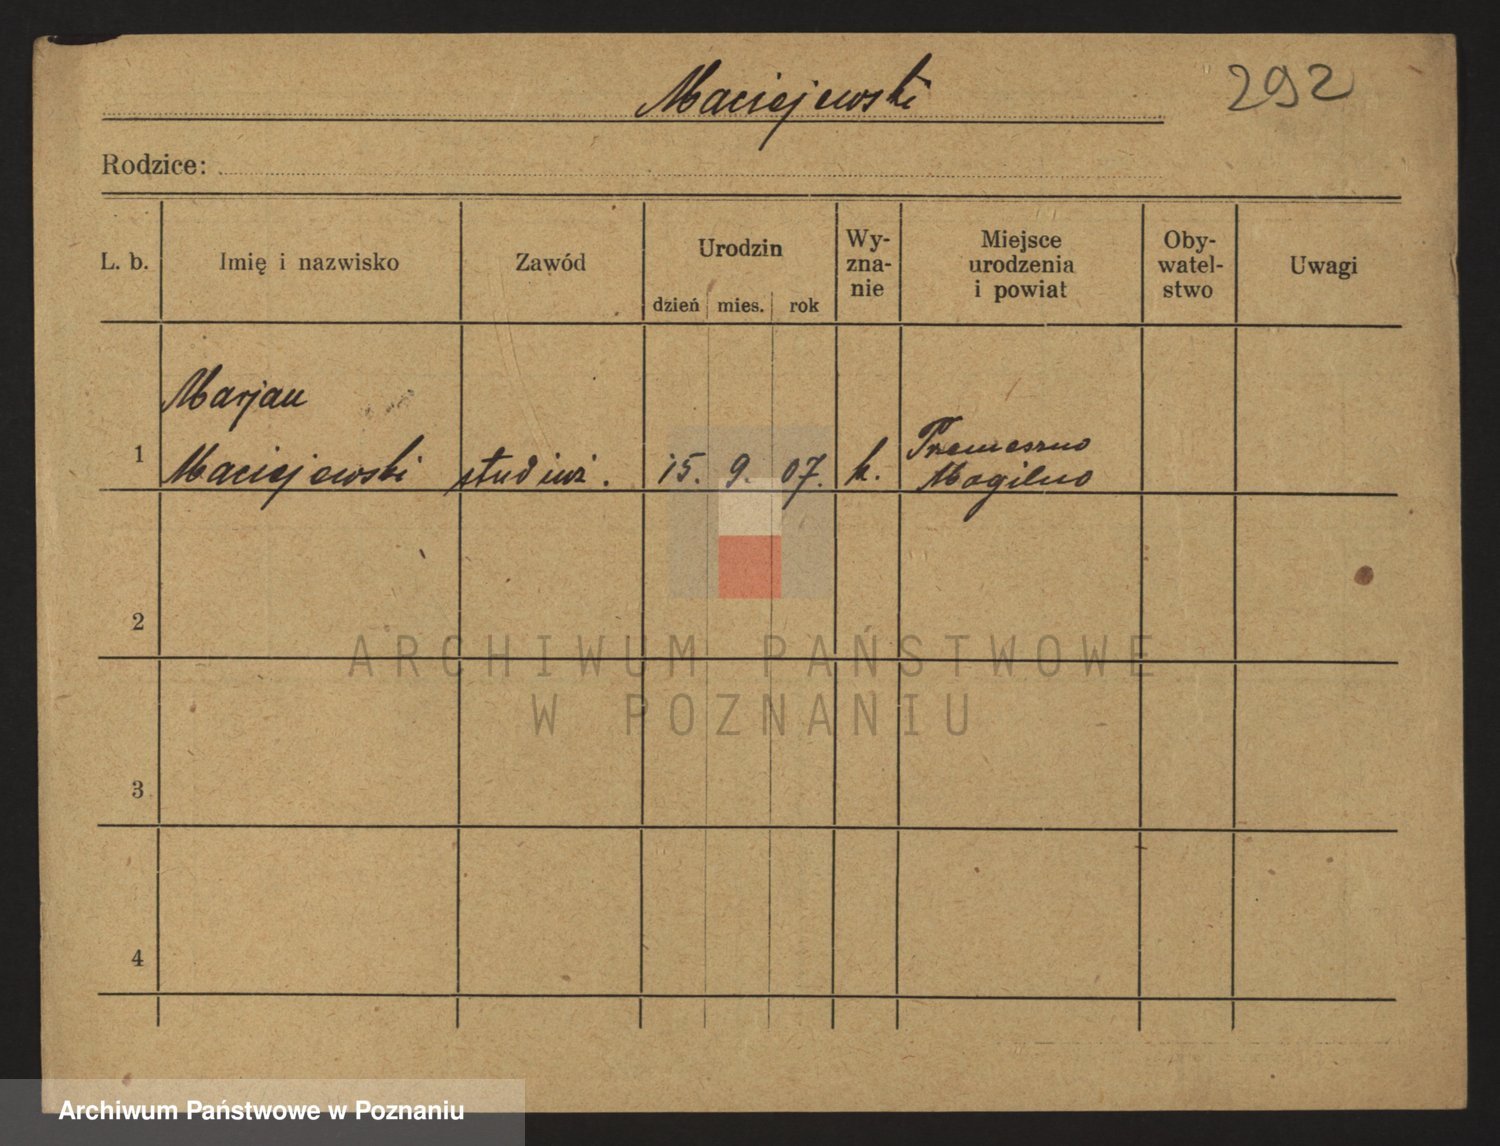 Maciejewski
292
Rodzice:
L. b.
Imię i nazwisko
Zawód
Urodzin
dzień mies. rok
Wy-
zna-
nie
Miejsce
urodzenia
i powiat
Oby-
watel-
stwo
Uwagi
Marjan
1 Maciejewski 15. 9. 07. k.
Tremeszno
Mogilno
2
3
4
ARCHIWUM PAŃSTWOWE
W POZNANIU
Archiwum Państwowe w Poznaniu